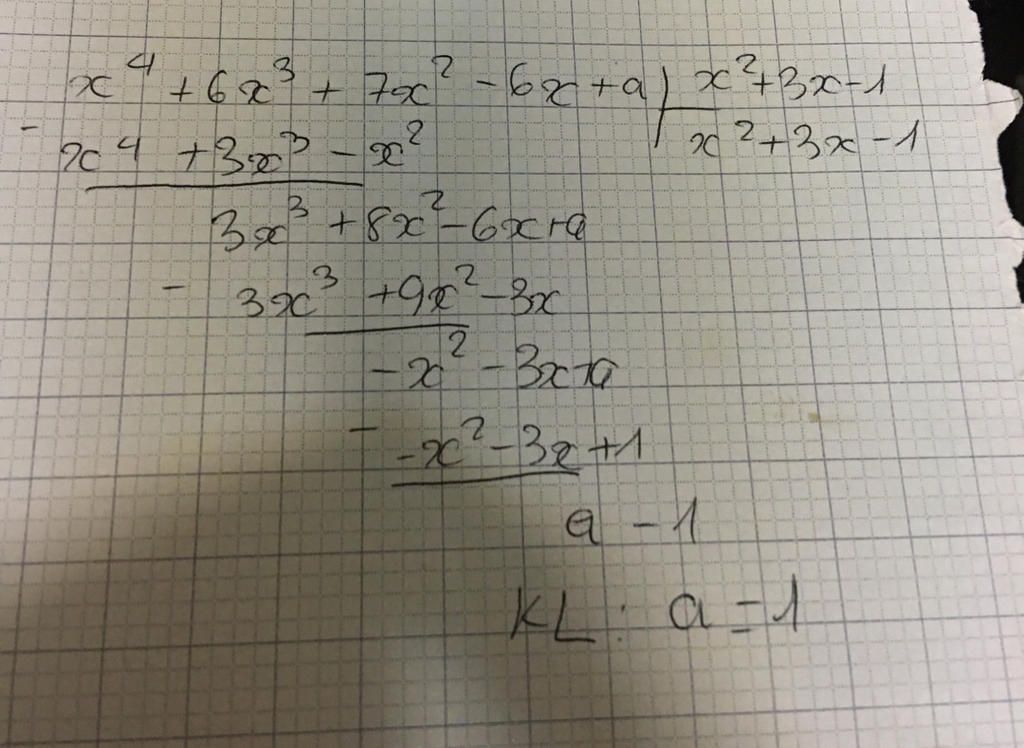 x⁴ + 6x³ + 7x² - 6x + a | x² + 3x - 1
- x⁴ + 3x³ - x² | x² + 3x - 1
3x³ + 8x² - 6x + a
- 3x³ + 9x² - 3x
- x² - 3x + a
- - x² - 3x + 1
a - 1
KL : a = 1